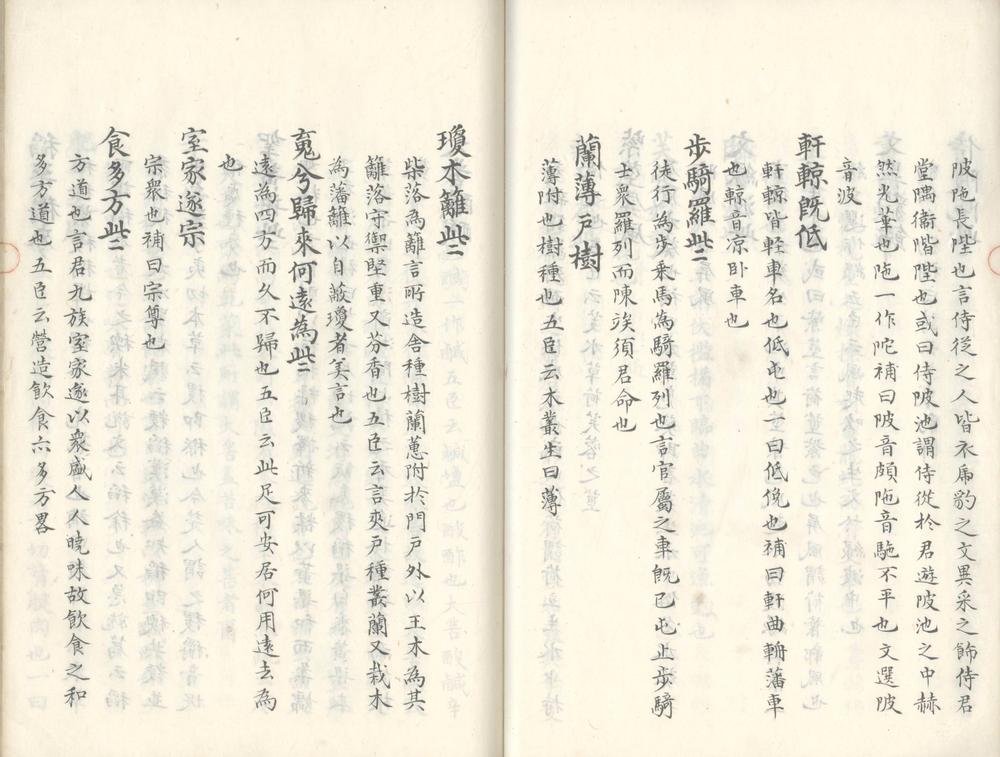 陂陁長陛也言侍從之人皆衣虎豹之文異采之飾侍君
堂隅衞階陛也或曰侍陂池謂侍從於君遊陂池之中赫
然光華也陁一作陀補曰陂音頗陁音駞不平也文選陂
音波
軒輬旣低
軒輬皆軽車名也低屯也一曰低俛也補曰軒曲輈藩車
也輬音凉卧車也
步騎羅些二
徒行為步乘馬為騎羅列也言官屬之車旣已屯止步騎
士衆羅列而陳竢須君命也
蘭薄戶樹
薄附也樹種也五臣云木叢生曰薄
瓊木籬些二
柴落為籬言所造舎種樹蘭蕙附於門戶外以玉木為其
籬落守禦堅重又芬香也五臣云言夾戶種叢蘭又栽木
為藩籬以自蔽瓊者美言也
䰟兮歸來何遠為些二
遠為四方而久不歸也五臣云此足可安居何用遠去為
也
室家遂宗
宗衆也補曰宗尊也
食多方些二
方道也言君九族室家遂以衆盛人人曉味故飲食之和
多方道也五臣云營造飲食亦多方畧